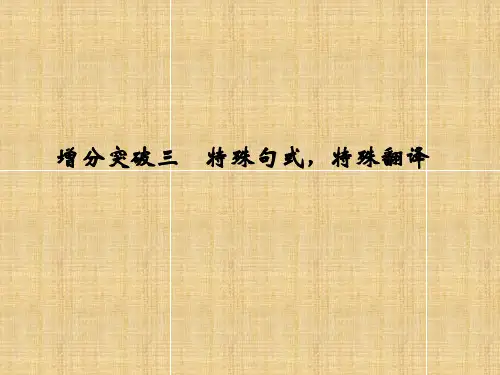 增分突破三　特殊句式，特殊翻译